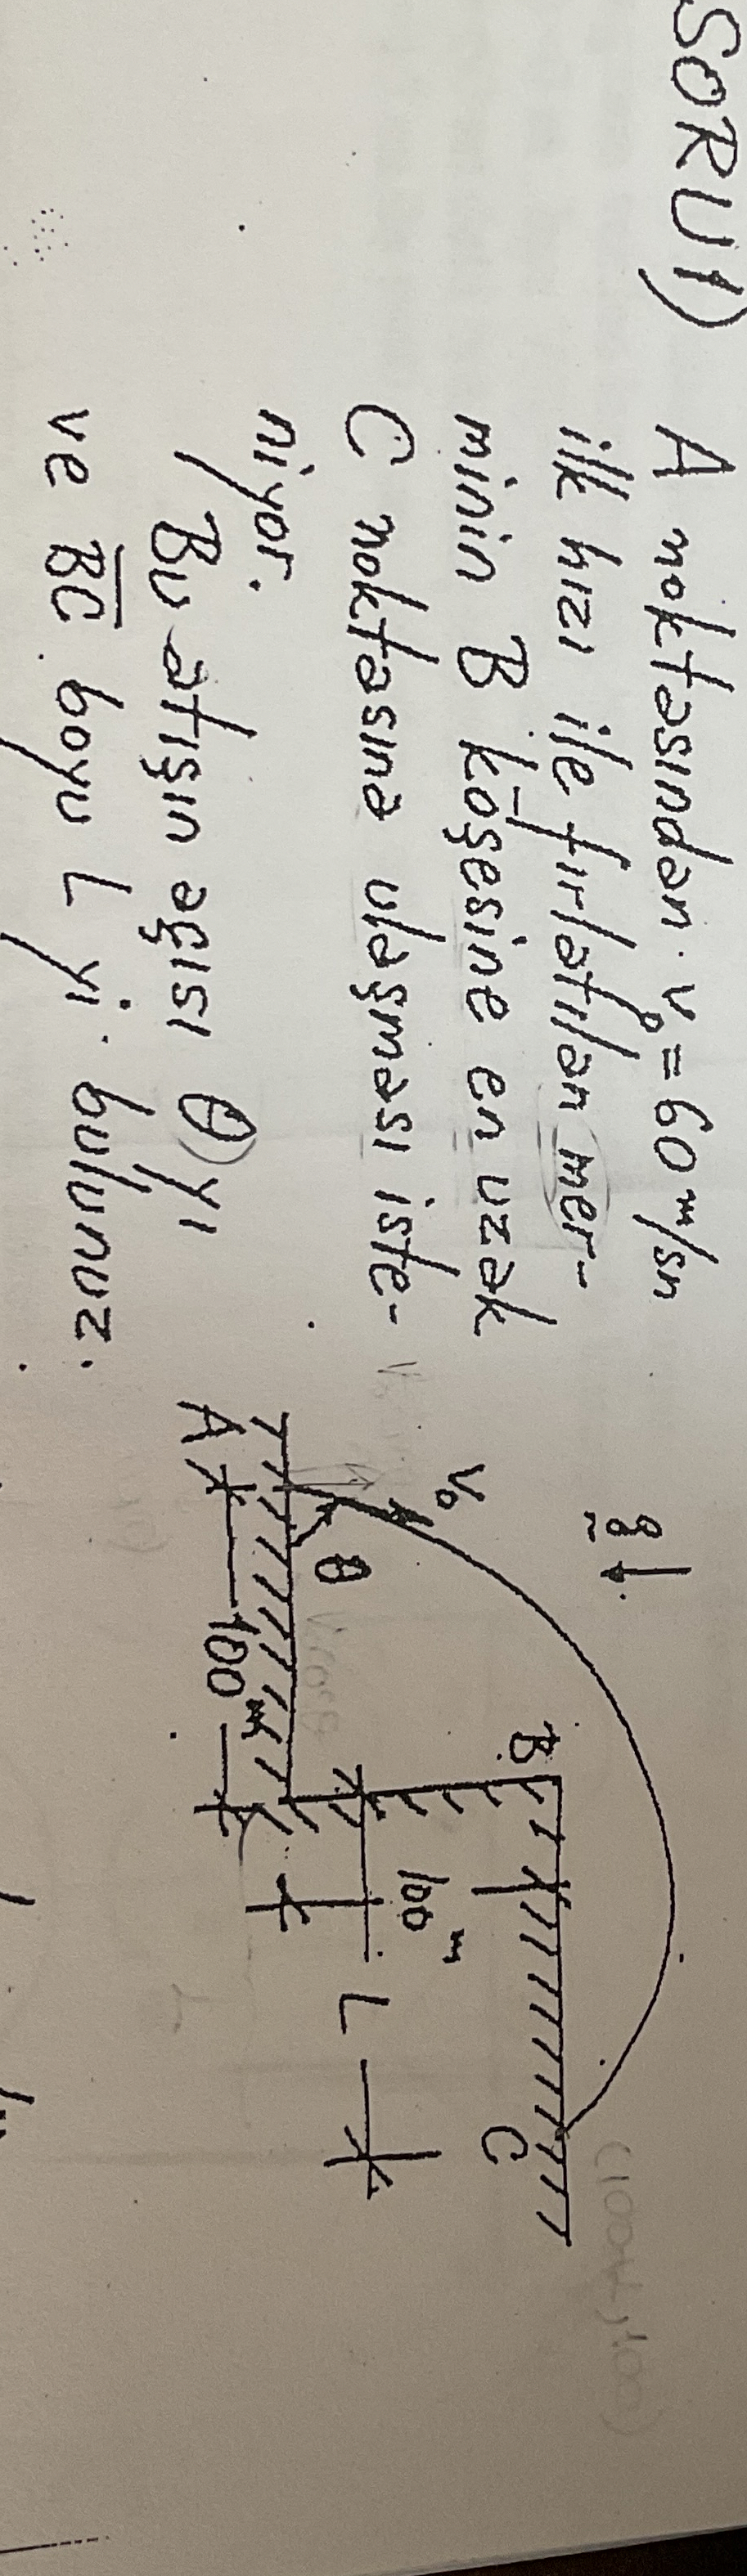 SORU 1) A noktasından v₀ = 60 m/sn
ilk hızı ile fırlatılan mer-
minin B köşesine en uzak
C noktasına ulaşması iste-
niyor.
Bu atışın açısı θ yı
ve BC boyu L yi bulunuz.
g
v₀
θ
A
100 m
B
100 m
L
C